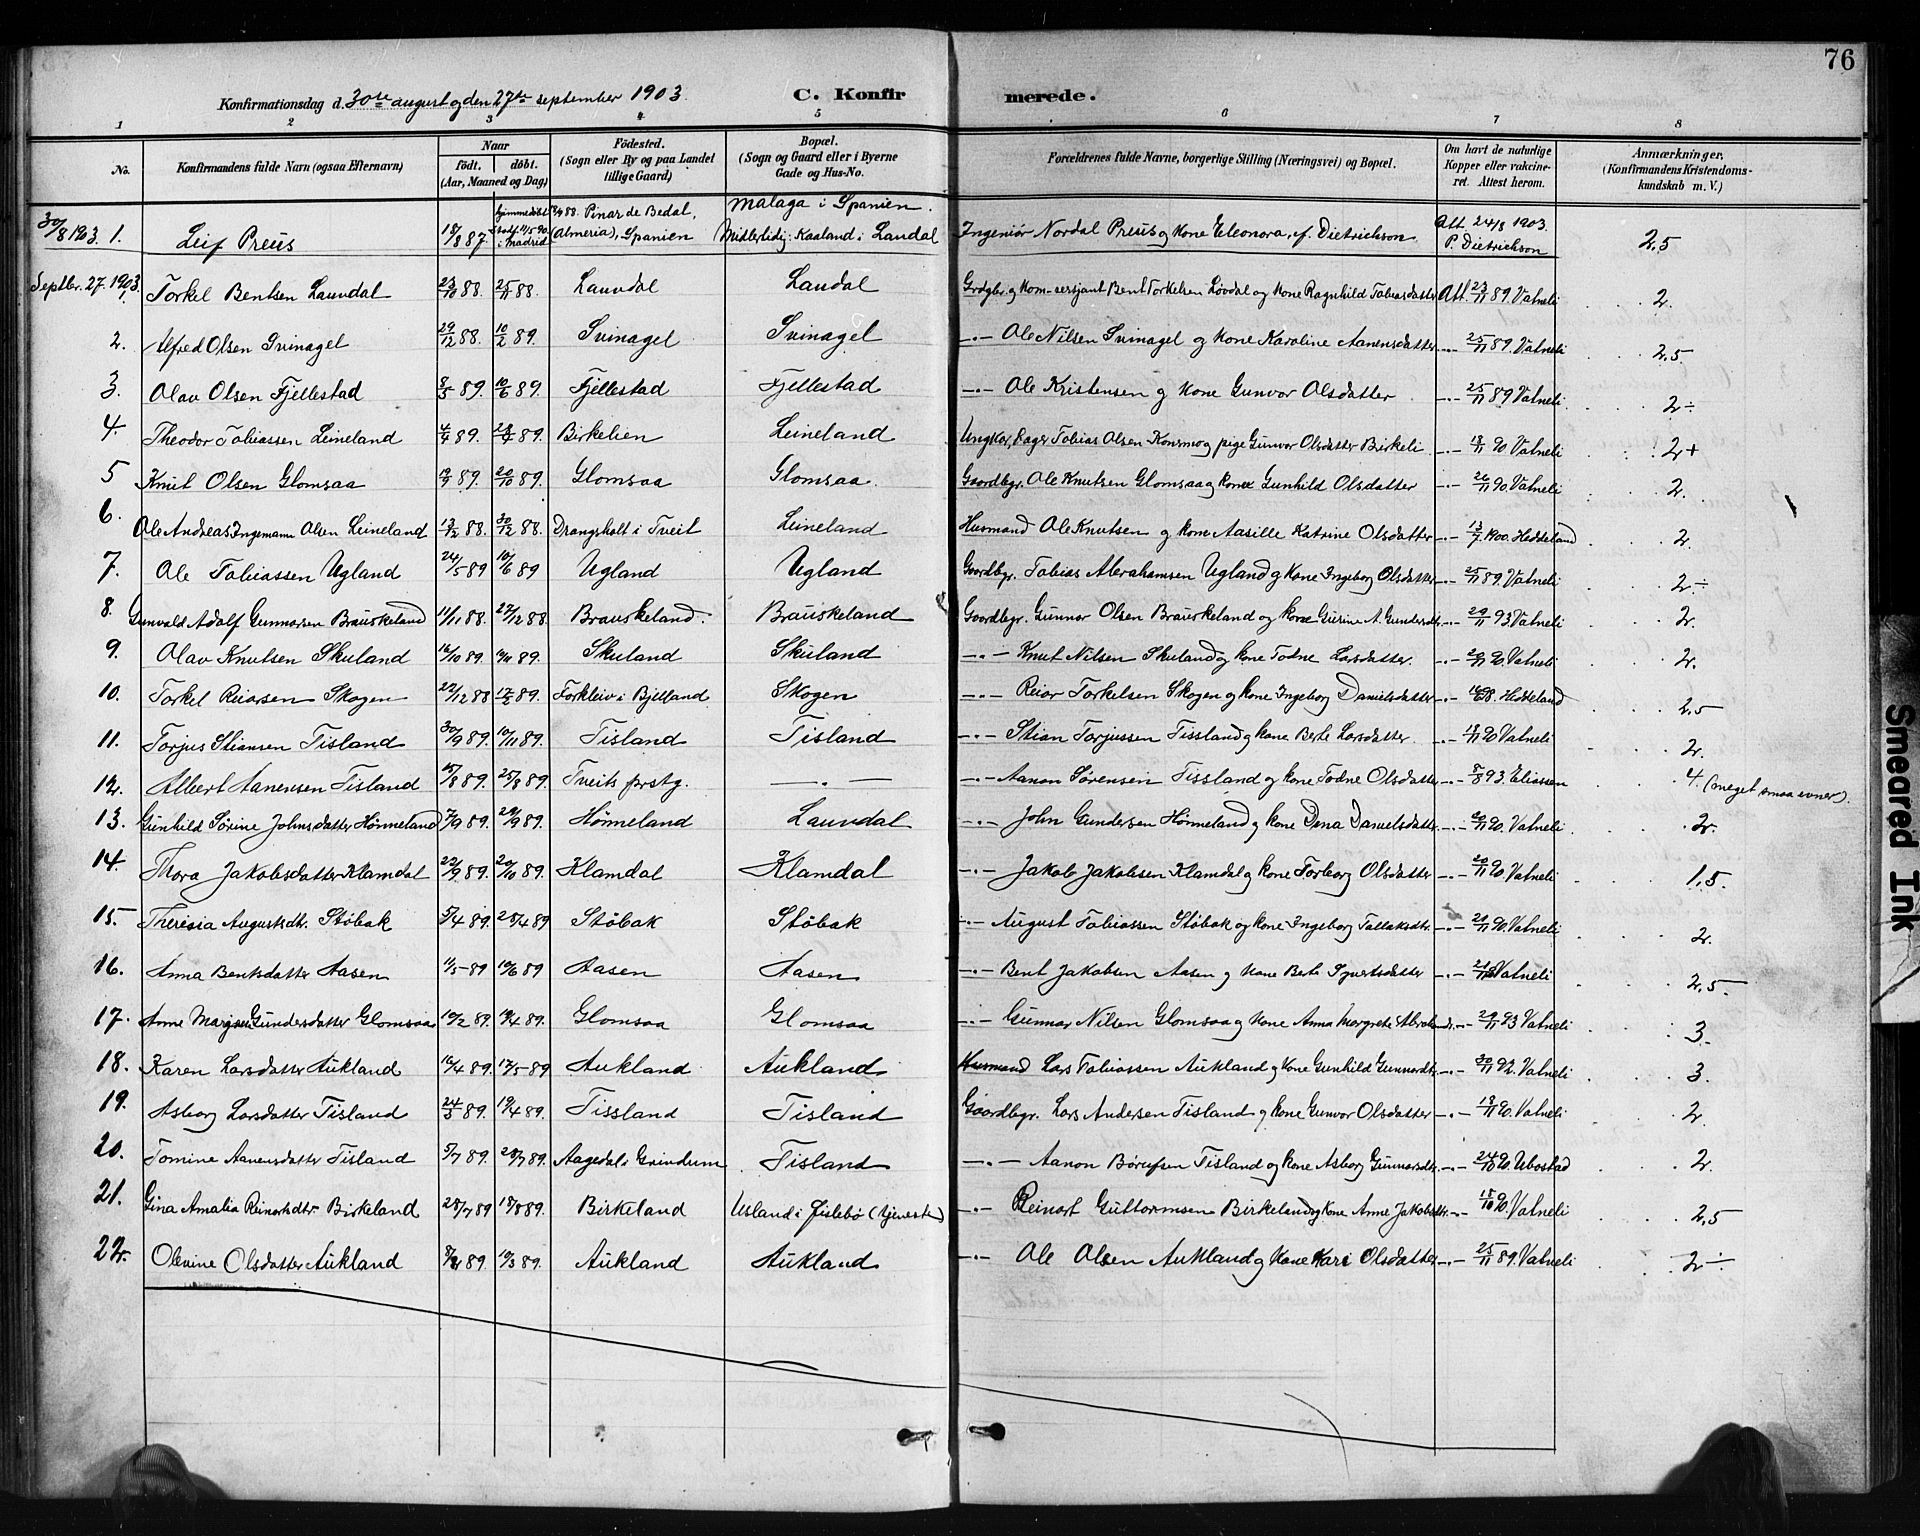 76
Konfirmationsdag d. 30te august og den 27te september 1903. C. Konfirmerede.
1 2 3 4 5 6 7 8
No. Konfirmandens fulde Navn (ogsaa Efternavn) Naar født. døbt. (Aar, Maaned og Dag) Fødested. (Sogn eller By og paa Landet tillige Gaard) Bopæl. (Sogn og Gaard eller i Byerne Gade og Hus-No. Forældrenes fulde Navne, borgerlige Stilling (Næringsvei) og Bopæl. Om havt de naturlige Kopper eller vakcineret. Attest herom. Anmærkninger. (Konfirmandens Kristendomskundskab m. V.)
30/8 1903. 1. Leif Preus 18/8 87 hjemmedøbt i Madrid Pinar de Bedal, (Almeria), Spanien Malaga i Spanien. Midlertidig: Kaaland i Laudal Ingeniør Nordal Preus og Kone Eleonora, f. Dietrichson Att. 24/8 1903. P. Dietrichson 2,5
Septbr. 27. 1903. 1. Torkel Bentsen Lauvdal 23/10 88. 25/11 88. Lauvdal Laudal Grdgbr. og Bent Torkelsen Løvdal og Kone Ragnhild Tobiasdatter Att. 23/11 89. Vatneli 2.
2. Alfred Olsen Svinagel 29/12 88. 10/2 89. Svinagel Svinagel —.— Ole Nilsen Svinagel og Kone Karoline Aanensdatter —.— 25/11 89. Vatneli 2,5
3. Olav Olsen Fjellestad 8/5 89. 10/6 89. Fjellestad Fjellestad —.— Ole Kristensen og Kone Gunvor Olsdatter —.— 25/11 89 Vatneli 2÷
4. Theodor Tobiassen Leineland 4/4 89. 28/4 89. Birkelien Leineland Ungkar, Bager Tobias Olsen Konsmo og pige Gunvor Olsdatter Birkeli —.— 18/11 90. Vatneli 2+
5 Knut Olsen Glomsaa 19/9 89. 20/10 89. Glomsaa Glomsaa. Gaardbgr. Ole Knutsen Glomsaa og Kone Gunhild Olsdatter —.— 20/11 90. Vatneli 2.
6. Ole Andreas Ingemann Olsen Leineland 13/12 88. 30/12 88. Drangsholt i Tveit Leineland Husmand Ole Knutsen og kone Aasille Katrine Olsdatter —.— 13/7. 1900. Heddeland 2.
7. Ole Tobiassen Ugland 24/5 89 10/6 89 Ugland Ugland Gaardbgr. Tobias Abrahamsen Ugland og Kone Ingeborg Olsdatter —.— 25/11 89. Vatneli 2÷
8. Gunvald Adolf Gunnarsen Brauskeland 11/11 88. 27/12 88 Brauskeland. Brauskeland Gaardbgr. Gunnar Olsen Brauskeland og Kone Gurine A. Gundersdtr. —.— 29/11 93. Vatneli 2.
9. Olav Knutsen Skuland 16/10 89. 10/11 89. Skuland Skuland —.— Knut Nilsen Skuland og kone Todne Larsdatter. —.— 20/11 90. Vatneli 2.
10. Torkel Reiarsen Skogen 22/12 88 17/2 89. Forkleiv i Bjelland Skogen —.— Reiar Torkelsen Skogen og kone Ingeborg Danielsdatter —.— Heddeland 2,5
11. Torjus Stiansen Tisland 30/9 89. 10/11 89. Tisland Tisland —.— Stian Torjussen Tissland og kone Berte Larsdatter. —.— 18/11 90 Vatneli 2.
12. Albert Aanensen Tisland 5/8 89. 25/8 89. Tveits prstg. —.— —.— Aanon Sørensen Tissland og kone Todne Olsdatter —.— 8/8 93. Eliassen 4 (meget smaa evner).
13. Gunhild Sørine Johnsdatter Hønneland 7/9 89. 29/9 89. Hønneland Lauvdal —.— John Gundersen Hønneland og Kone Dina Danielsdatter —.— 20/11 90. Vatneli 2.
14. Thora Jakobsdatter Klamdal 22/9 89. 20/10 89. Klamdal Klamdal —.— Jakob Jakobsen Klamdal og Kone Torborg Olsdatter —.— 20/11 90. Vatneli 1,5.
15. Theresia Augustsdtr. Støbak 5/4 89. 28/4 89 Støbak Støbak —.— August Tobiassen Støbak og Kone Ingeborg Tallaksdtr. —.— 21/11 90. Vatneli 2.
16. Anna Bentsdatter Aasen 11/5 89 10/6 89 Aasen Aasen —.— Bent Jakobsen Aasen og Kone Berte Syvertsdatter —.— Vatneli 2,5.
17. Anne Gundersdatter Glomsaa 10/2 89. 19/4 89. Glomsaa Glomsaa —.— Gunnar Nilsen Glomsaa og Kone Anna Margrete —.— 29/11 93 Vatneli 3.
18. Karen Larsdatter Aukland 16/4 89. 17/5 89 Aukland Aukland Husmand Lars Tobiassen Aukland og Kone Gunhild Gunnarsdtr. —.— 30/11 92. Vatneli 3.
19. Asborg Larsdatter Tisland 24/3 89. 19/4 89. Tissland Tisland Gaardbgr. Lars Andersen Tisland og kone Gunvor Olsdatter —.— 13/11 90. Vatneli 2.
20. Tomine Aanensdatter Tisland 5/7 89. 28/7 89. Aagedal i Grindum Tisland —.— Aanon Tisland og Kone Asborg Gunnarsdtr. —.— 24/10 90. Ubostad 2.
21. Gina Amalia Reinertsdtr. Birkeland 28/7 89 18/8 89. Birkeland Usland i Øislebø (tjeneste) —.— Reinart Guttormsen Birkeland og Kone Anne Jakobsdtr. —.— 18/10 90. Vatneli 2,5
22. Olevine Olsdatter Aukland 89. 10/3 89. Aukland Aukland —.— Ole Olsen Aukland og Kone Kari Olsdatter —.— 25/11 89. Vatneli 2÷
Smeared Ink